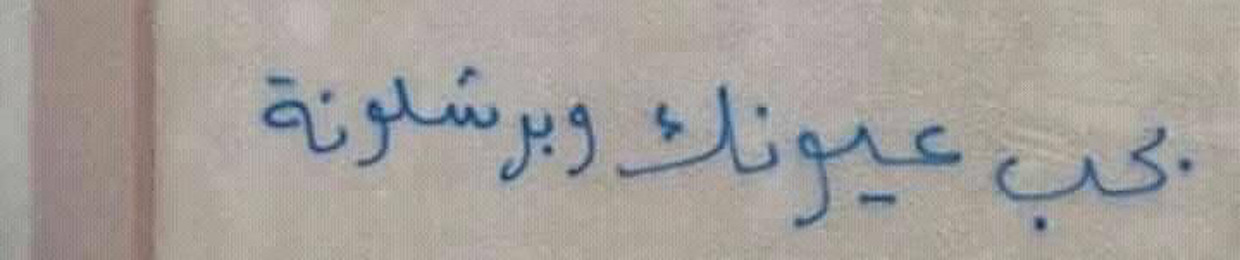 بحب عيونك وبرشلونة